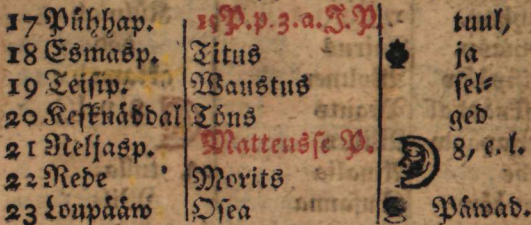 17 Pühhap. 15 P. p. 3. a. J. P. tuul,
18 Esmasp. Titus ja
19 Teisip. Waustus sel-
20 Kesknäddal Töns ged
21 Neljasp. Matteusse P. 8, e. l.
22 Rede Morits
23 Loupääw Osea Päwad.